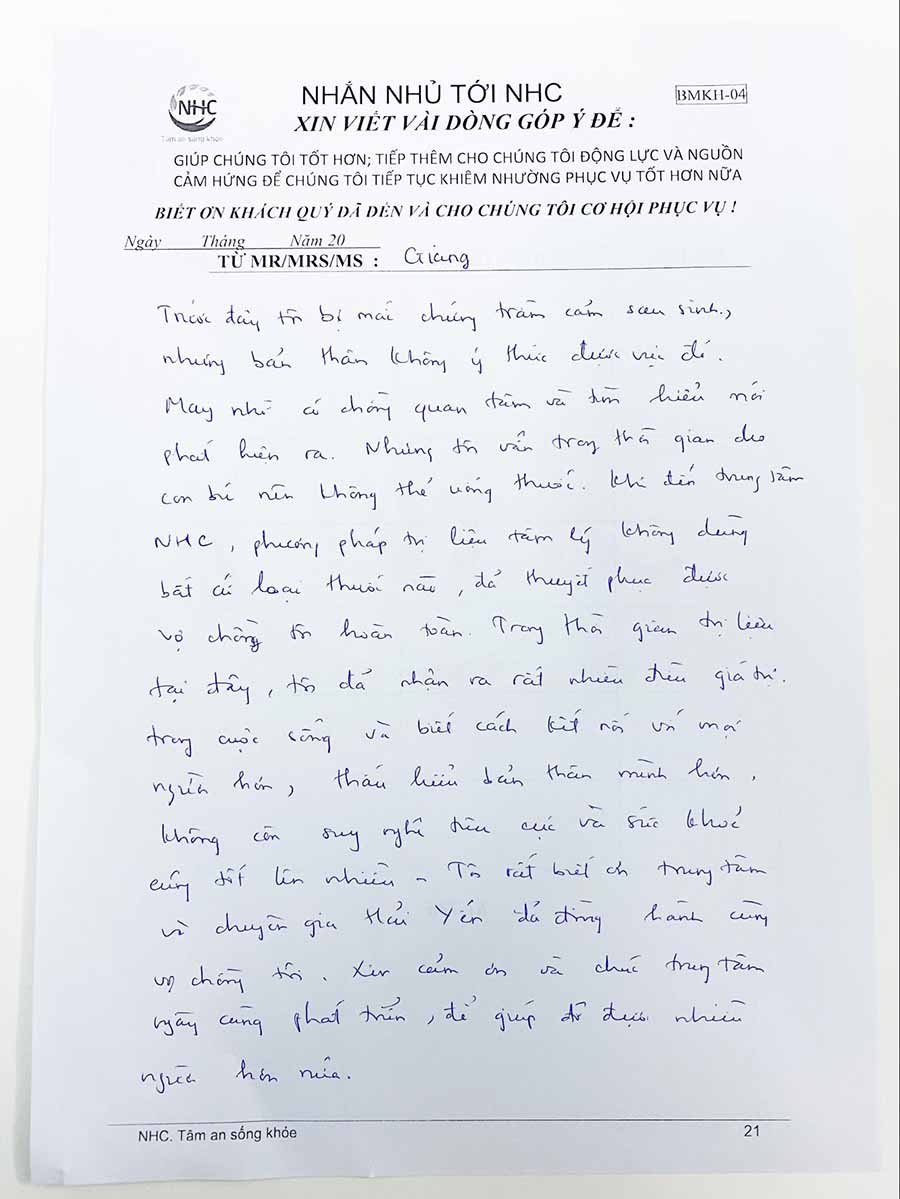 NHC
Tâm an sống khỏe
NHẮN NHỦ TỚI NHC
BMKH-04
XIN VIẾT VÀI DÒNG GÓP Ý ĐỂ :
GIÚP CHÚNG TÔI TỐT HƠN; TIẾP THÊM CHO CHÚNG TÔI ĐỘNG LỰC VÀ NGUỒN
CẢM HỨNG ĐỂ CHÚNG TÔI TIẾP TỤC KHIÊM NHƯỜNG PHỤC VỤ TỐT HƠN NỮA
BIẾT ƠN KHÁCH QUÝ ĐÃ ĐẾN VÀ CHO CHÚNG TÔI CƠ HỘI PHỤC VỤ !
Ngày Tháng Năm 20
TỪ MR/MRS/MS : Giang
Trước đây tôi bị mắc chứng trầm cảm sau sinh,
nhưng bản thân không ý thức được việc đó.
May nhờ có chồng quan tâm và tìm hiểu mới
phát hiện ra. Nhưng tôi vẫn trong thời gian cho
con bú nên không thể uống thuốc. Khi đến trung tâm
NHC, phương pháp trị liệu tâm lý không dùng
bất cứ loại thuốc nào, đã thuyết phục được
vợ chồng tôi hoàn toàn. Trong thời gian trị liệu
tại đây, tôi đã nhận ra rất nhiều điều giá trị.
trong cuộc sống và biết cách kết nối với mọi
người hơn, thấu hiểu bản thân mình hơn.
Không còn suy nghĩ tiêu cực và sức khoẻ
cũng tốt lên nhiều - Tôi rất biết ơn trung tâm
và chuyên gia Hải Yến đã đồng hành cùng
vợ chồng tôi. Xin cảm ơn và chúc trung tâm
ngày càng phát triển, để giúp đỡ được nhiều
người hơn nữa.
NHC. Tâm an sống khỏe 21